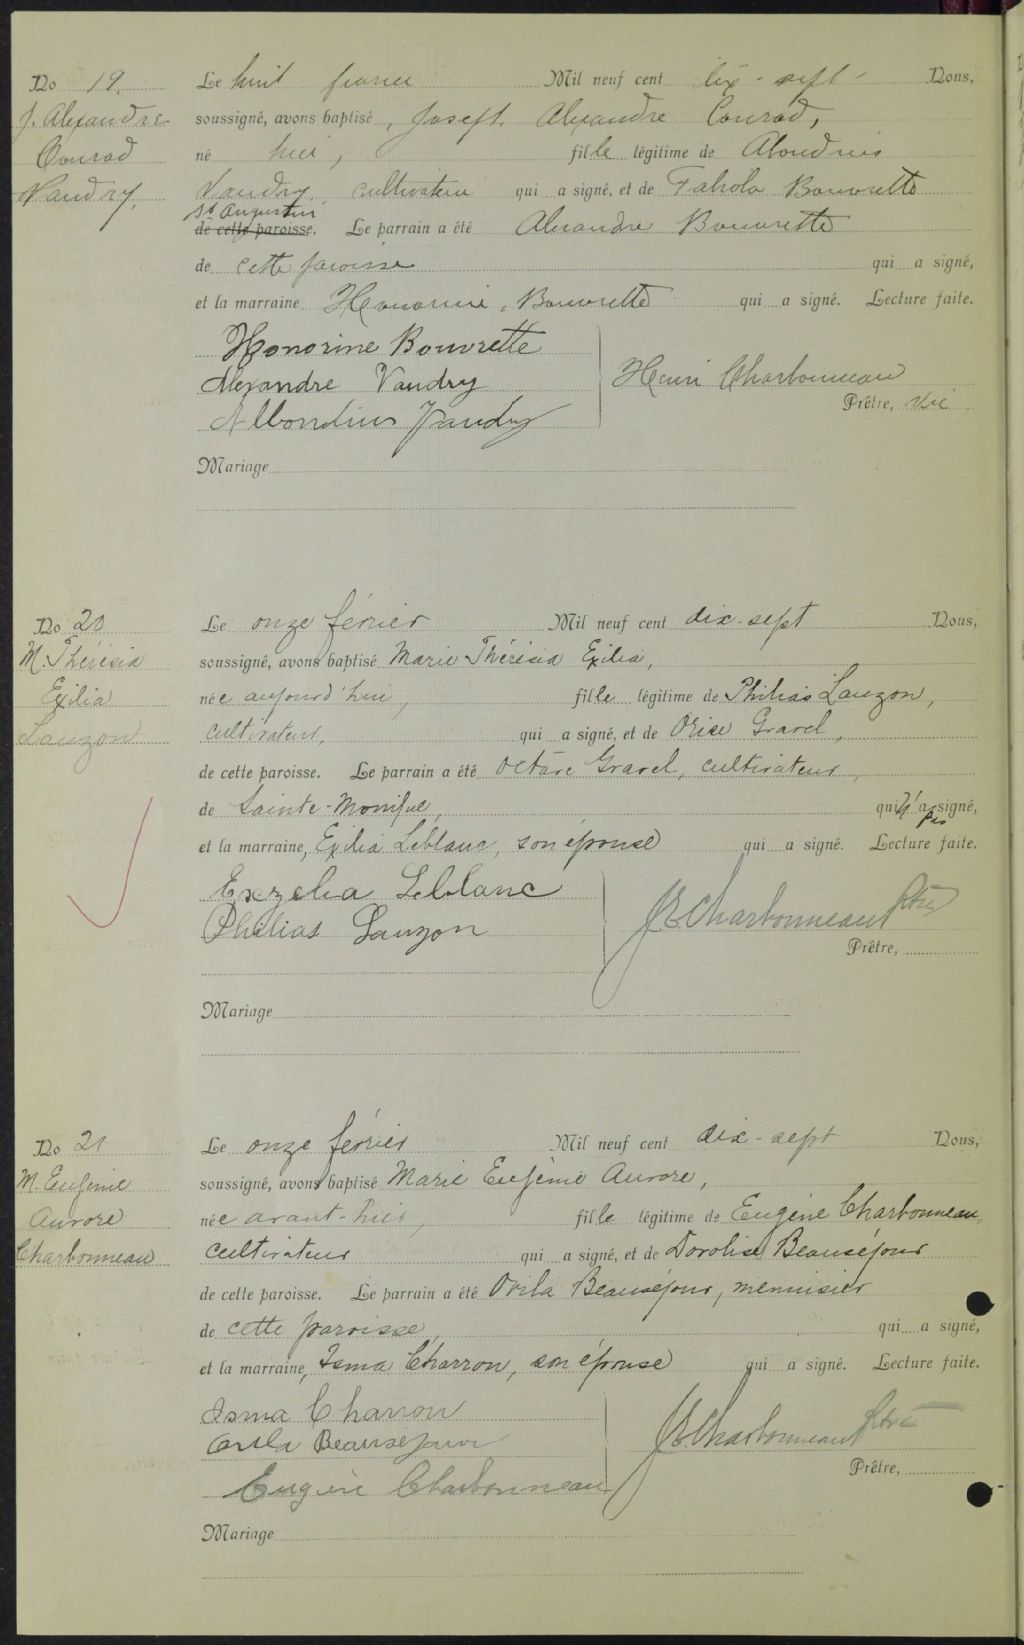 No 19.
J. Alexandre
Conrad
Vaudry.
Le huit fevrier Mil neuf cent dix-sept Nous,
soussigné, avons baptisé, Joseph Alexandre Conrad,
né hier, fille légitime de Abondius
Vaudry, cultivateur qui a signé, et de Fabiola Bouvrette
St Augustin
de cette paroisse. Le parrain a été Alexandre Bouvrette
de cette paroisse qui a signé,
et la marraine Honorine Bouvrette qui a signé. Lecture faite.
Honorine Bouvrette
Alexandre Vaudry
Abondius Vaudry
Henri Charbonneau
Prêtre, Vic
Mariage
No 20
M. Thérésia
Exilia
Lauzon
Le onze février Mil neuf cent dix-sept Nous,
soussigné, avons baptisé Marie Thérésia Exilia,
née aujourd'hui, fille légitime de Philias Lauzon,
cultivateur, qui a signé, et de Orise Gravel,
de cette paroisse. Le parrain a été Octave Gravel, cultivateur,
de Sainte-Monique, qui n'a pas signé,
et la marraine, Exilia Leblanc, son épouse qui a signé. Lecture faite.
Exzelia Leblanc
Philias Lauzon
J E Charbonneau Ptre
Prêtre,
Mariage
No 21
M. Eugénie
Aurore
Charbonneau
Le onze février Mil neuf cent dix-sept Nous,
soussigné, avons baptisé Marie Eugénie Aurore,
née avant-hier, fille légitime de Eugène Charbonneau,
cultivateur qui a signé, et de Dorolise Beauséjour
de cette paroisse. Le parrain a été Ovila Beauséjour, menuisier
de cette paroisse, qui a signé,
et la marraine, Isma Charron, son épouse qui a signé. Lecture faite.
Isma Charron
Ovila Beausejour
Eugène Charbonneau
J E Charbonneau Ptre
Prêtre,
Mariage